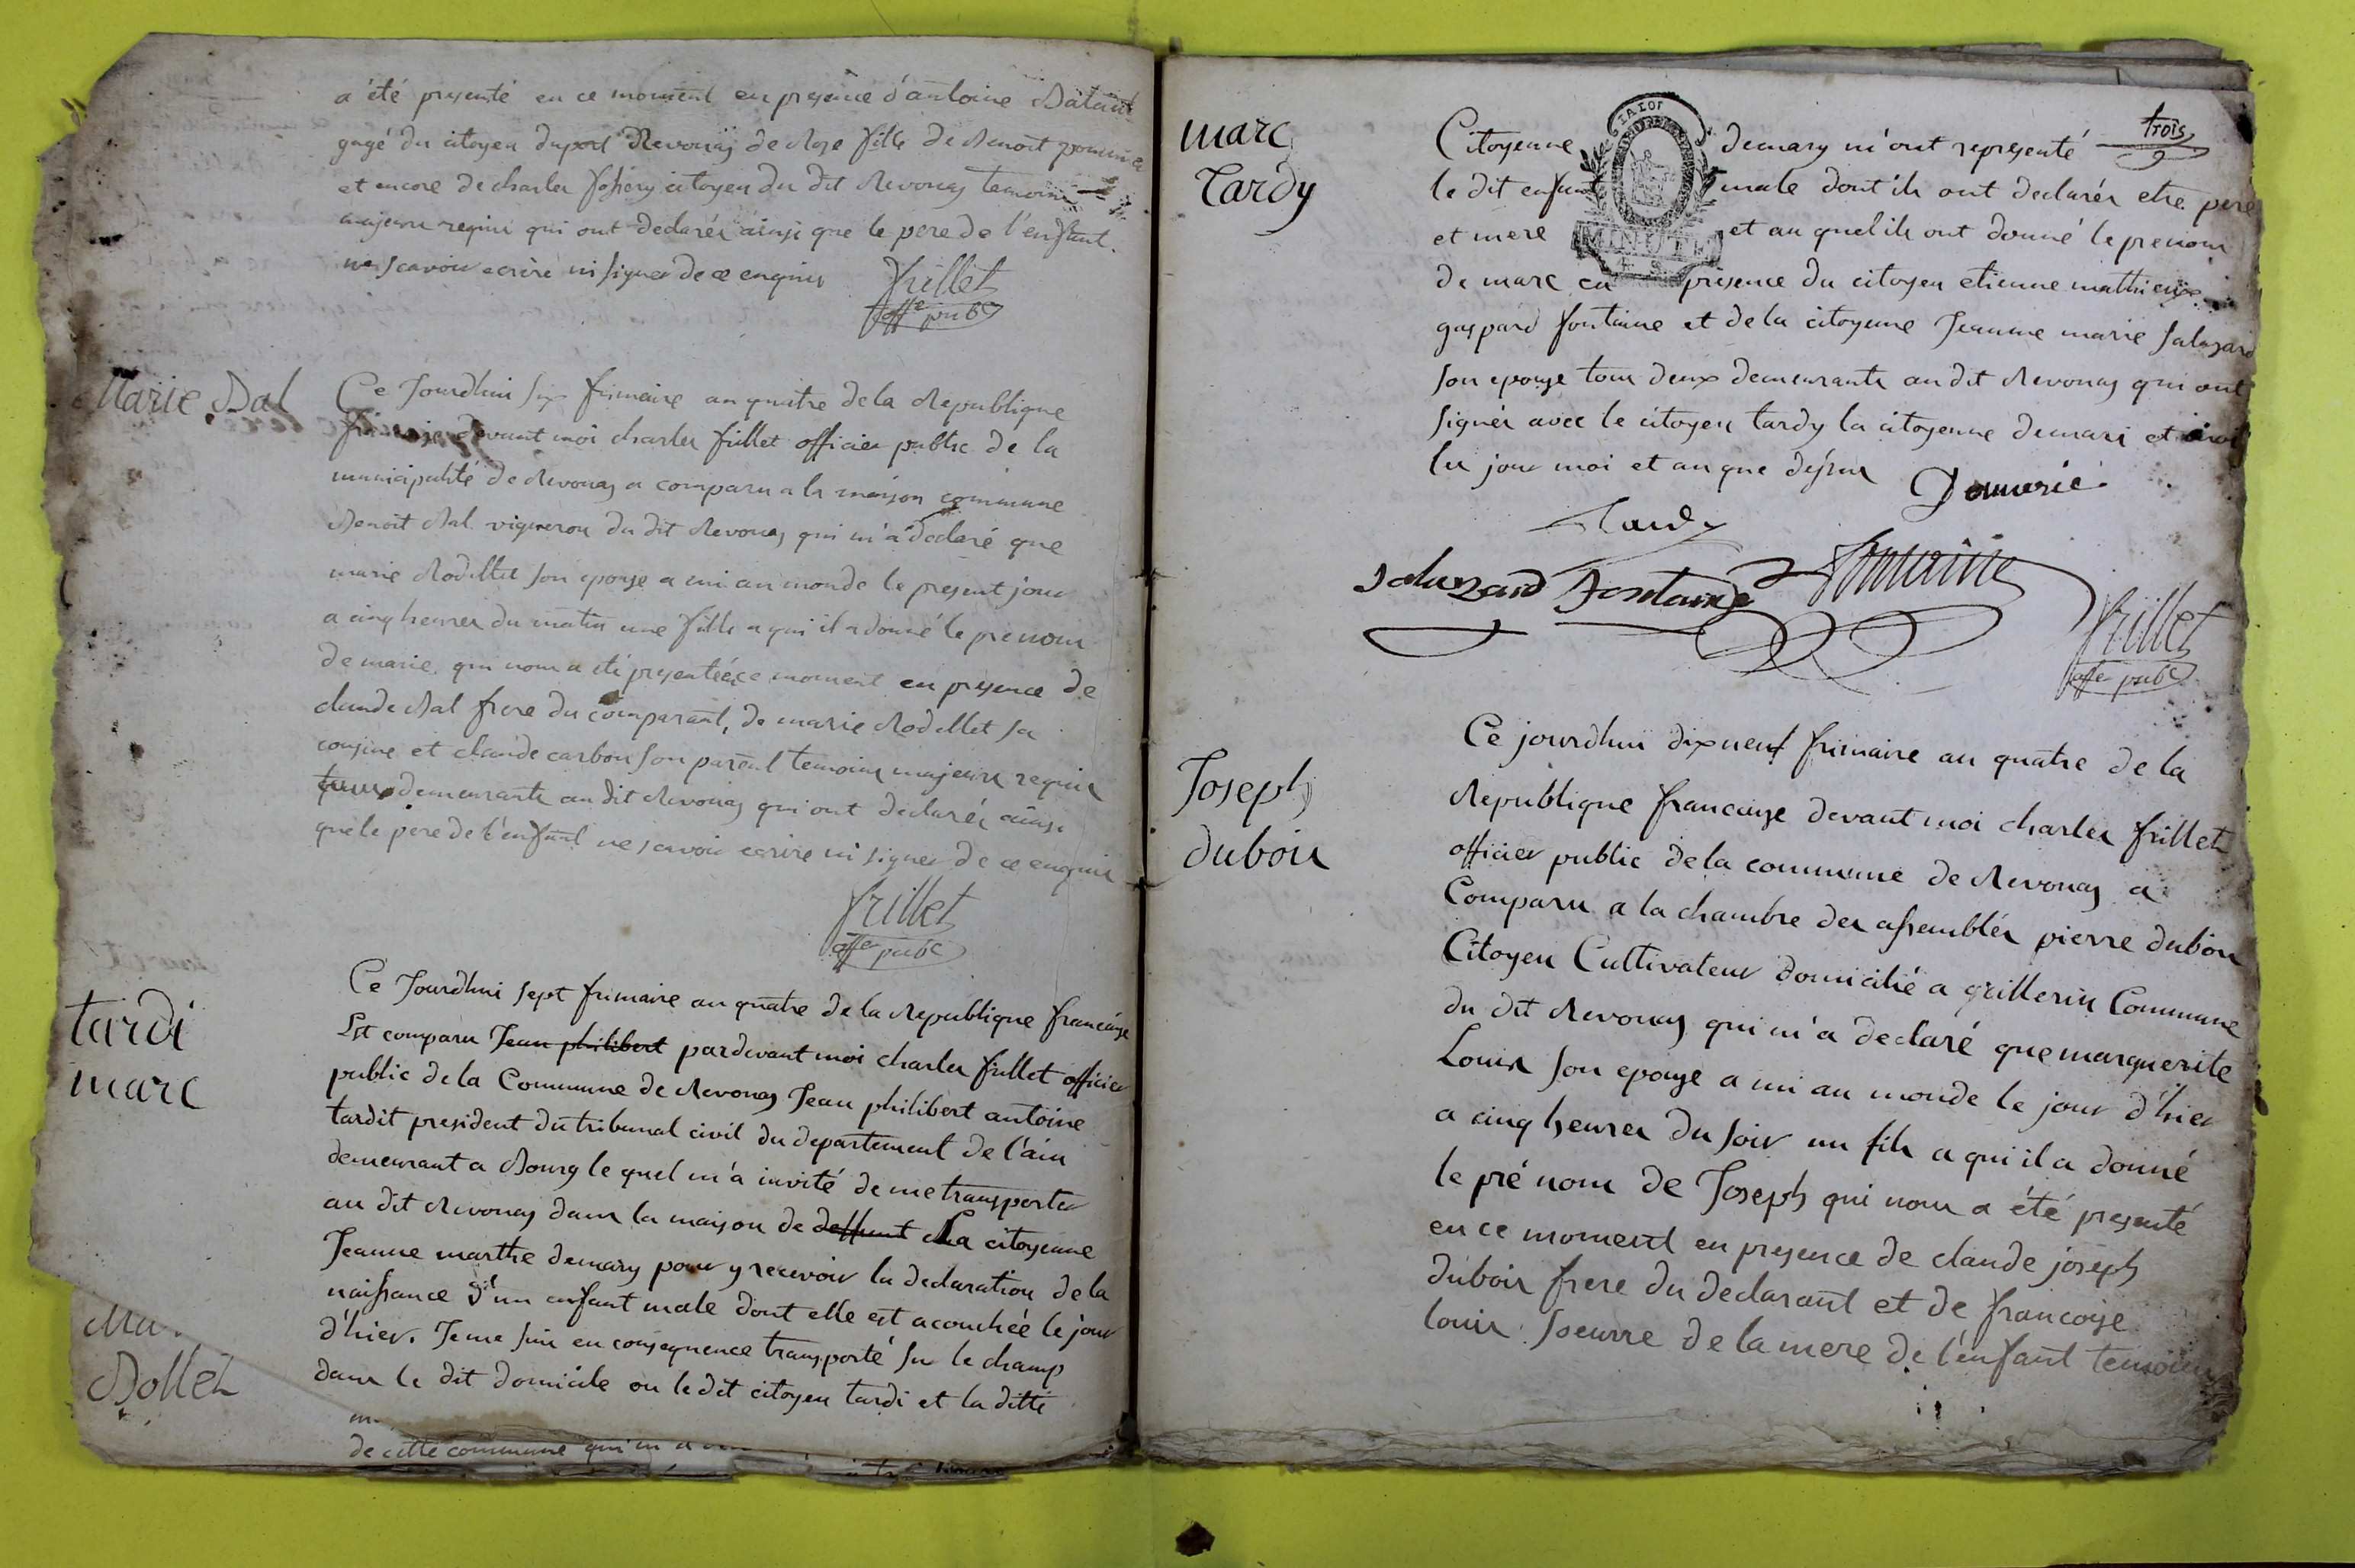 a été presenté en ce moment en presence d'antoine
gagé du citoyen duport Revonas de Rose fille de Benoit
et encore de charles citoyen du dit Revonas temoins
majeurs requis qui ont declarés ainsi que le pere de l'enfant
ne scavoir ecrire ni signer de ce enquis frillet
offer public
Marie Bal
Ce Jourdhui six frimaire an quatre de la Republique
devant moi charles frillet officier public de la
municipalité de Revonas a comparu a la maison commune
Benoit Bal vigneron du dit Revonas qui m'a declaré que
marie Rodillet son epouse a mi au monde le present jour
a cinq heures du matin une fille a qui il a donné le prenom
de marie qui nous a été presentée ce moment en presence de
claude Bal frere du comparant, de marie Rodillet sa
cousine et claude carbon son parent temoins majeurs requis
demeurants au dit Revonas qui ont declarés ainsi
que le pere de l'enfant ne scavoir ecrire ni signer de ce enquis
frillet
offer pubc
tardi
marc
Ce Jourdhui sept frimaire an quatre de la Republique francaise
Est comparu Jean philibert pardevant moi charles frillet officier
public de la Commune de Revonas Jean philibert antoine
tardit president du tribunal civil du departement de l'ain
demeurant a Bourg le quel m'a invité de me transporter
au dit Revonas dans la maison de deffunt La citoyenne
Jeanne marthe demary pour y recevoir la declaration de la
naissance d'un enfant male dont elle est acouchée le jour
d'hier. Je me suis en consequence transporté sur le champ
dans le dit domicile ou le dit citoyen tardi et la ditte
Bollet
de cette commune qui m'a
trois
marc
Tardy
Citoyenne demary m'ont representé
le dit enfant male dont ils ont declarés etre pere
et mere et au quel ils ont donné le prenom
MINUTE
de marc en presence du citoyen etienne mathieu
gaspard fontaine et de la citoyenne Jeanne marie salazard
son epouse tous deux demeurants au dit Revonas qui ont
signés avec le citoyen tardy la citoyenne demari et moi
les jour moi et an que dessus Demerié
Tardy
Salazard fontaine fontaine
frillet
offer pubc
Joseph
dubois
Ce jourdhui dix neuf frimaire an quatre de la
Republique francaise devant moi charles frillet
officier public de la commune de Revonas a
Comparu a la chambre des assemblés pierre dubois
Citoyen Cultivateur domicilié a grillerin Commune
du dit Revonas qui m'a declaré que marguerite
Louis son epouse a mi au monde le jour d'hier
a cinq heures du soir un fils a qui il a donné
le pré nom de Joseph qui nous a été presenté
en ce moment en presence de claude joseph
dubois frere du declarant et de francoise
louis soeurre de la mere de l'enfant temoins